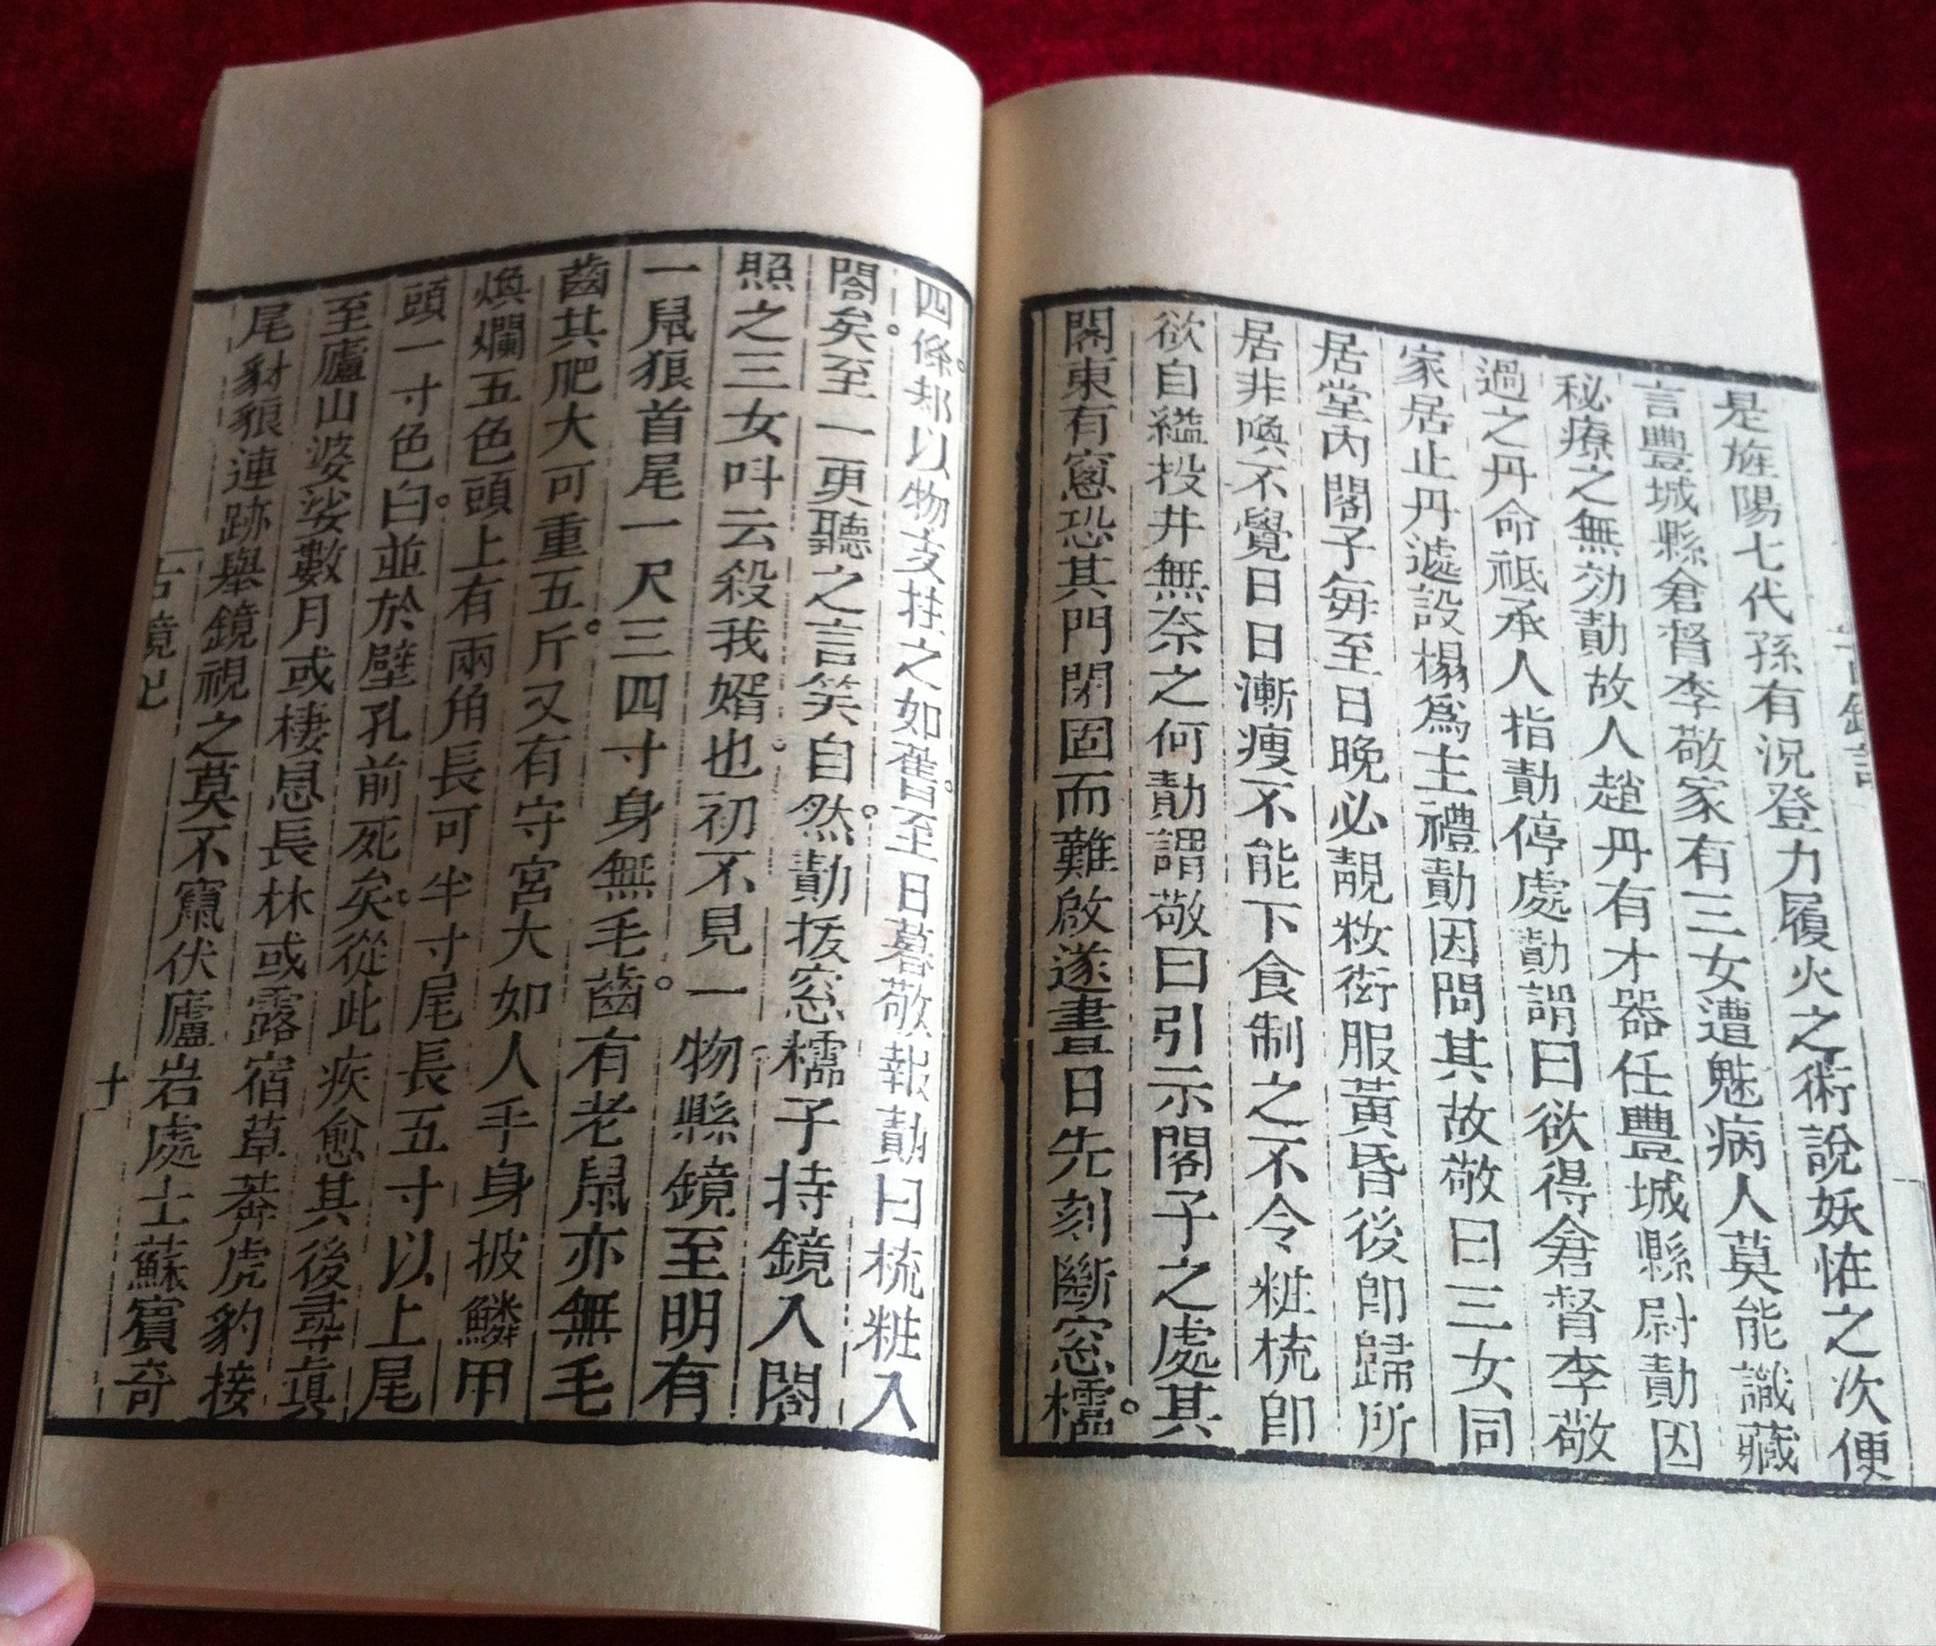 是旌陽七代孫有況登力履火之術說妖怪之次便
言豐城縣倉督李敬家有三女遭魅病人莫能識藏
秘療之無効勣故人趙丹有才器任豐城縣尉勣因
過之丹命祗承人指勣停處勣謂曰欲得倉督李敬
家居止丹遽設榻爲主禮勣因問其故敬曰三女同
居堂內閣子每至日晚必靚粧衒服黃昏後卽歸所
居非喚不覺日日漸瘦不能下食制之不令粧梳卽
欲自縊投井無奈之何勣謂敬曰引示閣子之處其
閣東有窻恐其門閉固而難啟遂晝日先刻斷窓櫺。
四條。却以物支拄之如舊。至日暮敬報勣曰梳粧入
閤矣。至一更聽之言笑自然。勣拔窓櫺子持鏡入閤
照之三女呌云殺我婿也。初不見一物縣鏡至明有
一鼠狼首尾一尺三四寸身無毛齒。有老鼠亦無毛
齒其肥大可重五斤。又有守宮大如人手身披鱗甲
煥爛五色頭上有兩角長可半寸尾長五寸以上尾
頭一寸色白。並於壁孔前死矣。從此疾愈其後尋眞
至廬山婆娑數月或棲息長林或露宿草莽虎豹接
尾豺狼連跡舉鏡視之莫不竄伏廬岩處士蘇賓奇
古鏡記
十